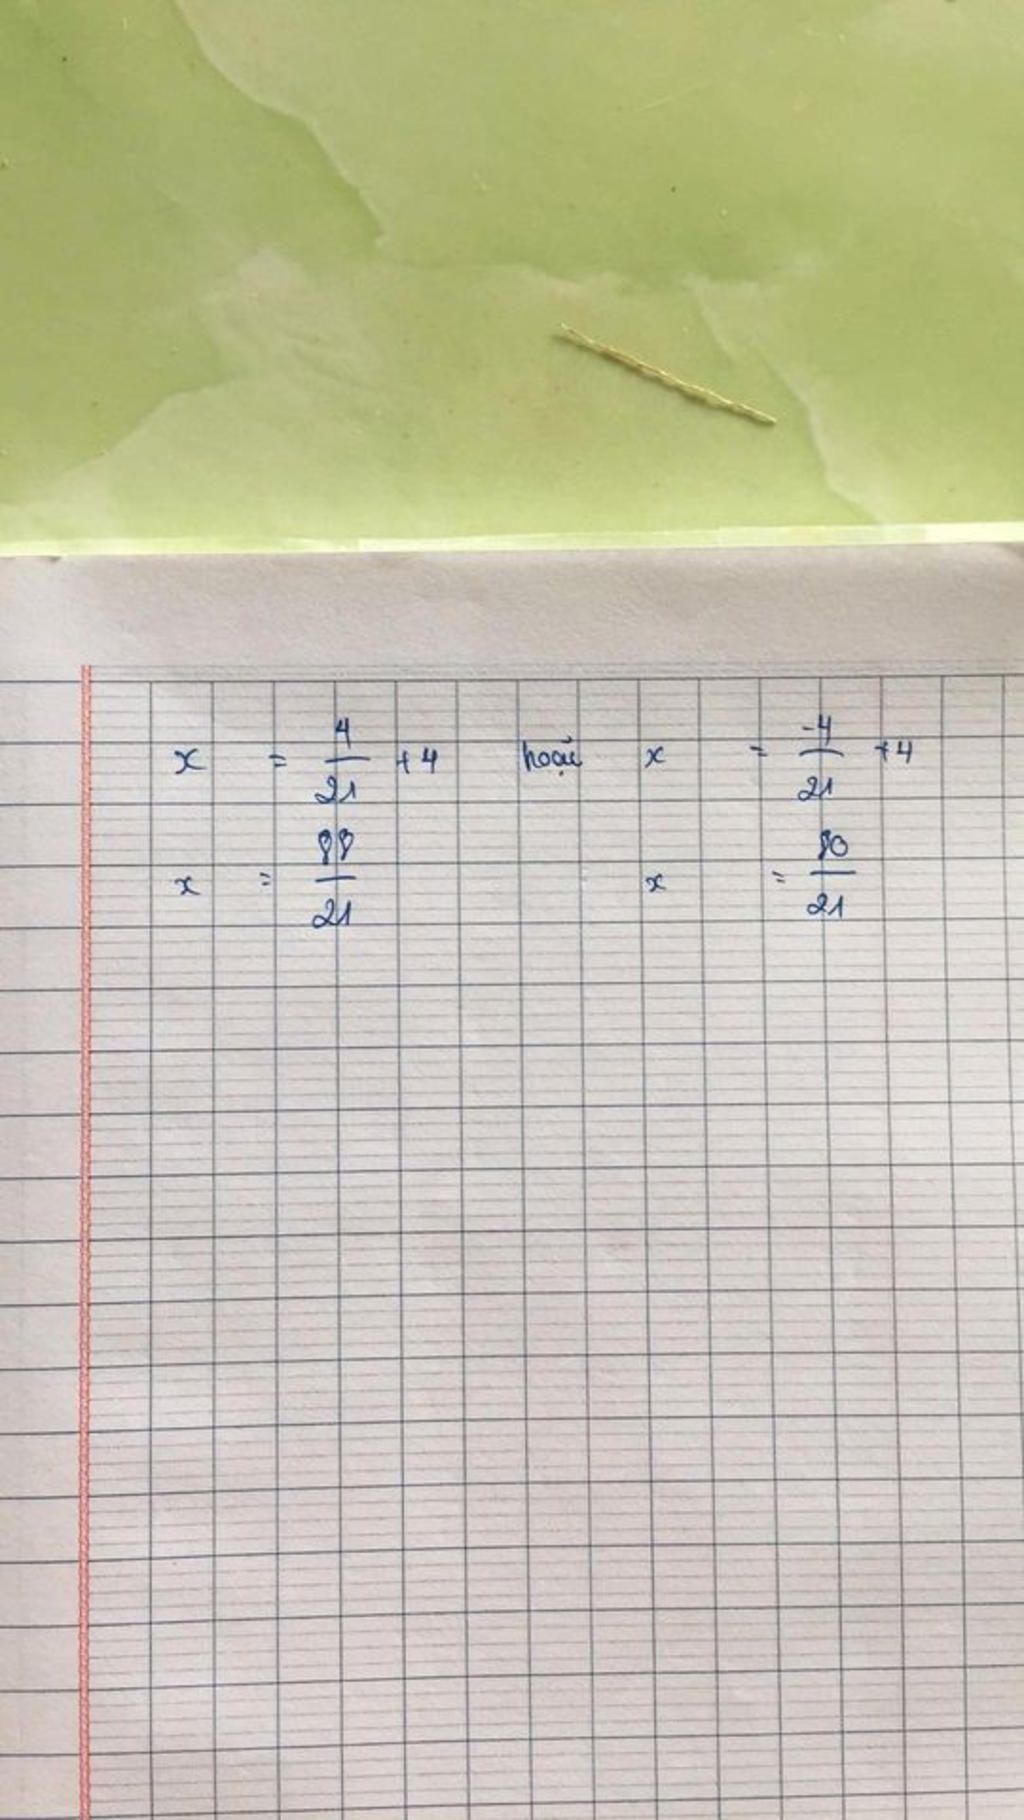 x = 4/21 + 4 hoặc x = -4/21 + 4
x = 88/21 x = 80/21